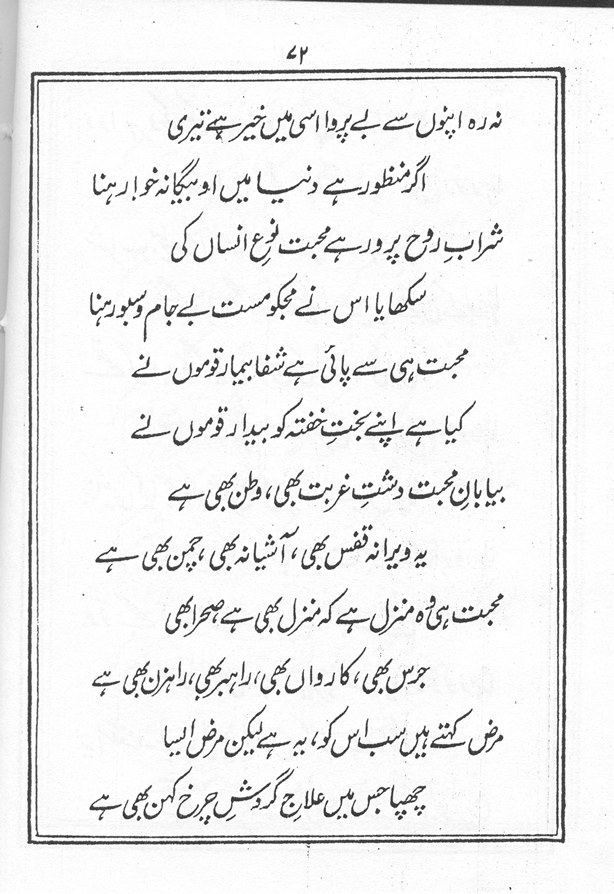 ۷۲
نہ رہ اپنوں سے بے پروا اسی میں خیر ہے تیری
اگر منظور ہے دنیا میں او بیگانہ خو! رہنا
شرابِ روح پرور ہے محبت نوعِ انساں کی
سکھایا اس نے مجکو مست بے جام و سبو رہنا
محبت ہی سے پائی ہے شفا بیمار قوموں نے
کیا ہے اپنے بختِ خفتہ کو بیدار قوموں نے
بیابانِ محبت دشتِ غربت بھی، وطن بھی ہے
یہ ویرانہ قفس بھی، آشیانہ بھی، چمن بھی ہے
محبت ہی وہ منزل ہے کہ منزل بھی ہے صحرا بھی
جرس بھی، کارواں بھی، راہبر بھی، راہزن بھی ہے
مرض کہتے ہیں سب اس کو، یہ ہے لیکن مرض ایسا
چھپا جس میں علاجِ گردشِ چرخِ کہن بھی ہے